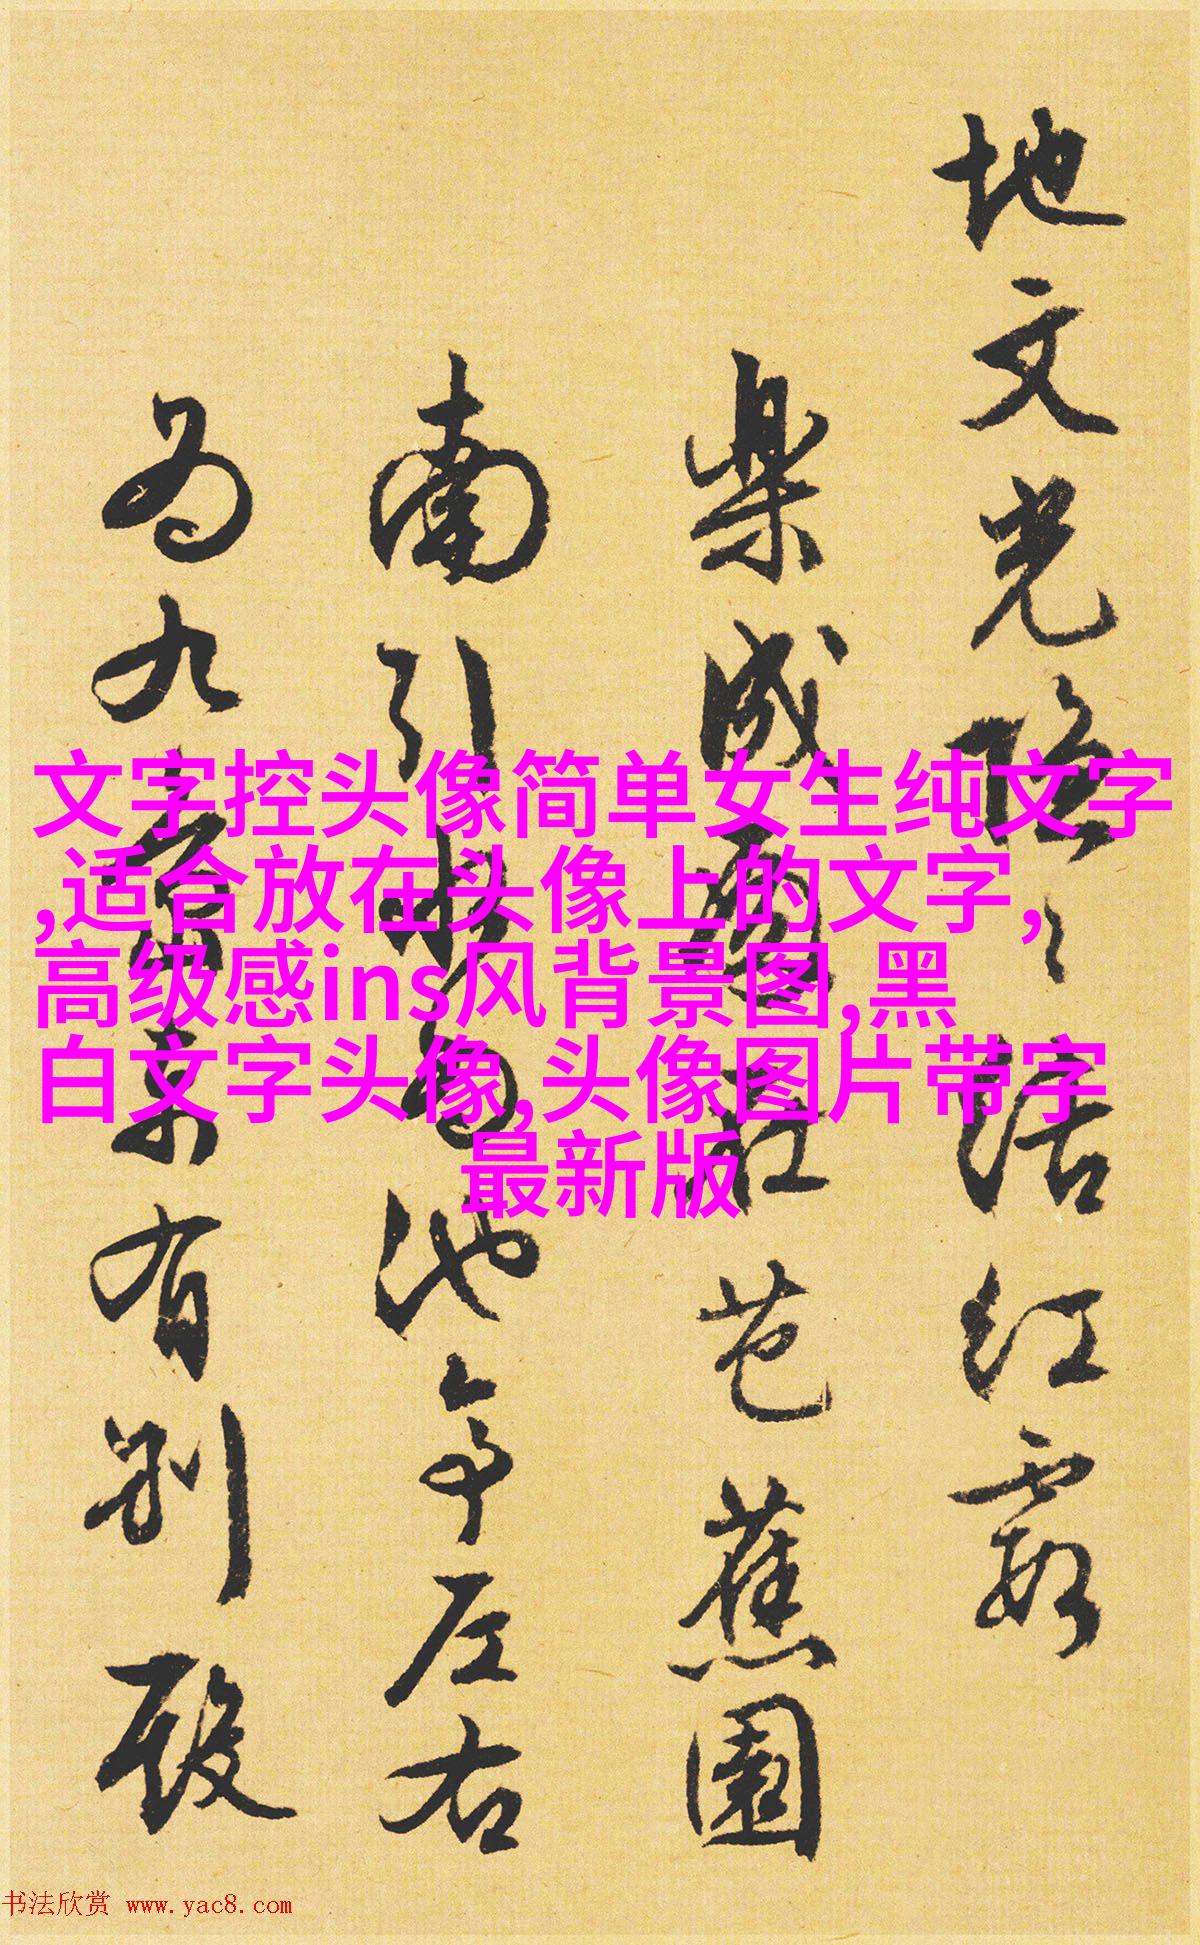 地文光陰〻結紅霞
樂成圖在芭蕉園
南引水田池亭左右
為九有別殿
文字控头像简单女生纯文字
,适合放在头像上的文字,
高级感ins风背景图,黑
白文字头像,头像图片带字
最新版
书法欣赏 www.yac8.com